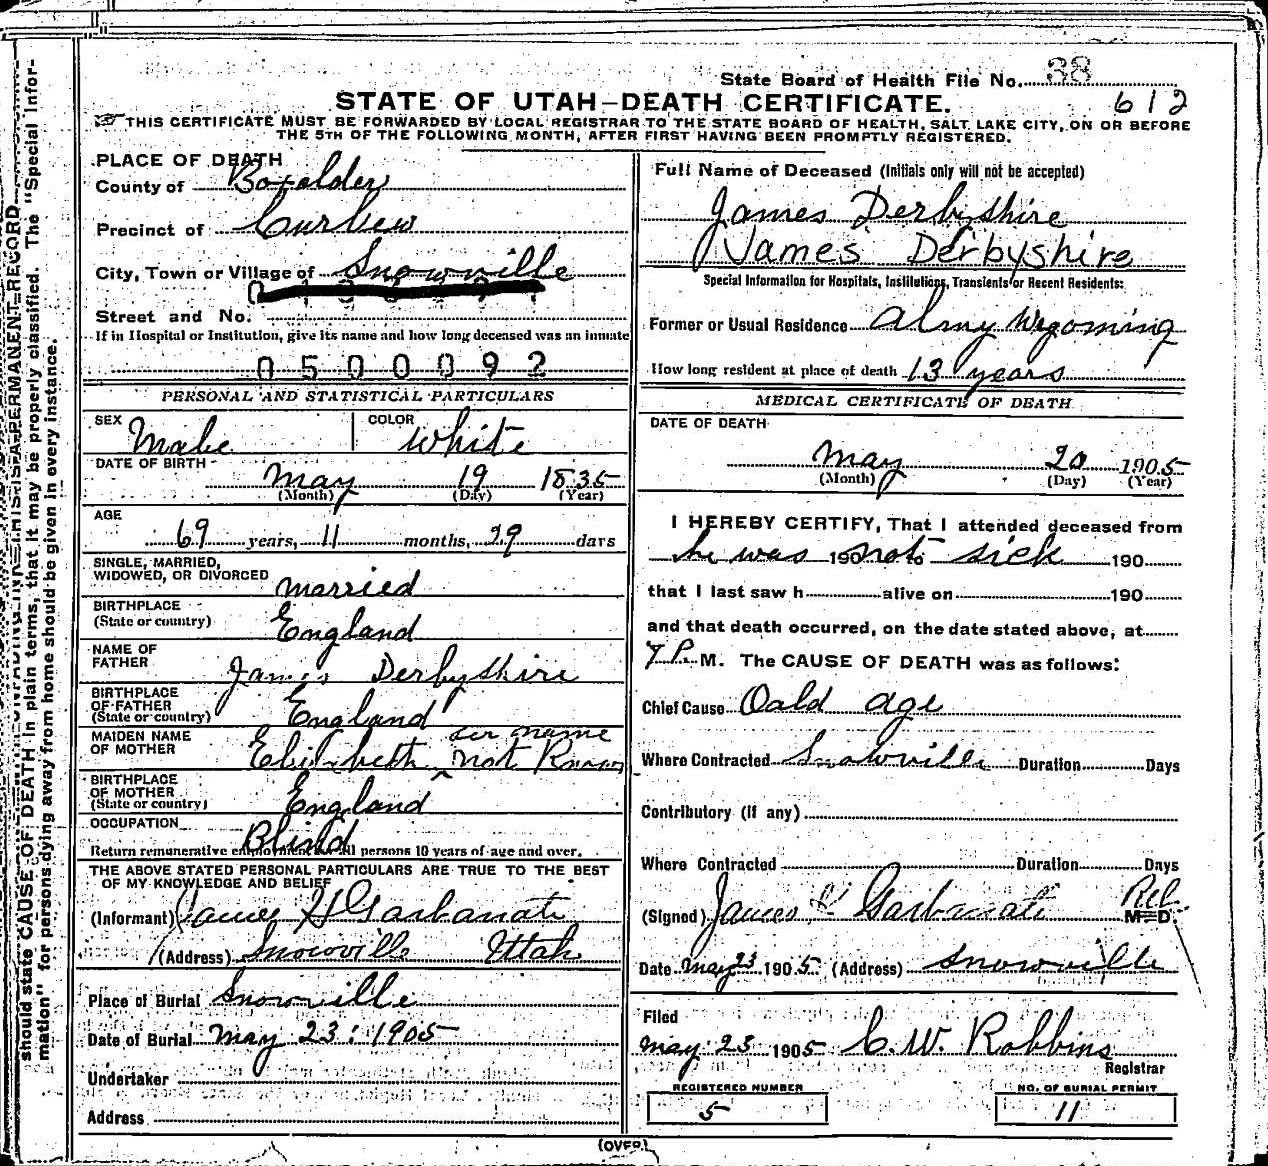 State Board of Health File No. 38
STATE OF UTAH—DEATH CERTIFICATE.
612
THIS CERTIFICATE MUST BE FORWARDED BY LOCAL REGISTRAR TO THE STATE BOARD OF HEALTH, SALT LAKE CITY, ON OR BEFORE
THE 5TH OF THE FOLLOWING MONTH, AFTER FIRST HAVING BEEN PROMPTLY REGISTERED.
PLACE OF DEATH
County of Boxelder
Precinct of Curlew
City, Town or Village of Snowville
Street and No.
If in Hospital or Institution, give its name and how long deceased was an inmate
0500092
PERSONAL AND STATISTICAL PARTICULARS
SEX Male COLOR White
DATE OF BIRTH May 19 1835
(Month) (Day) (Year)
AGE
69 years, 11 months, 29 days
SINGLE, MARRIED,
WIDOWED, OR DIVORCED married
BIRTHPLACE
(State or country) England
NAME OF
FATHER James Derbyshire
BIRTHPLACE
OF FATHER
(State or country) England
MAIDEN NAME
OF MOTHER Elisibeth ser name not Known
BIRTHPLACE
OF MOTHER
(State or country) England
OCCUPATION Blind
Return remunerative employment for all persons 10 years of age and over.
THE ABOVE STATED PERSONAL PARTICULARS ARE TRUE TO THE BEST
OF MY KNOWLEDGE AND BELIEF
(Informant) James H Garbanati
(Address) Snowville Uttah
Place of Burial Snowville
Date of Burial May 23: 1905
Undertaker
Address
Full Name of Deceased (Initials only will not be accepted)
James Derbyshire
James Derbyshire
Special Information for Hospitals, Institutions, Transients or Recent Residents:
Former or Usual Residence Almy Wyoming
How long resident at place of death 13 years
MEDICAL CERTIFICATE OF DEATH
DATE OF DEATH
May 20 1905
(Month) (Day) (Year)
I HEREBY CERTIFY, That I attended deceased from
he was 190 not to sick 190
that I last saw h alive on 190
and that death occurred, on the date stated above, at
7 P. M. The CAUSE OF DEATH was as follows:
Chief Cause Oald age
Where Contracted Snowville Duration Days
Contributory (if any)
Where Contracted Duration Days
(Signed) James H Garbanati M.D.
Date May 23 1905 (Address) Snowville
Filed
May 23 1905 C. W. Robbins
Registrar
REGISTERED NUMBER
5
NO. OF BURIAL PERMIT
11
(OVER)
should state CAUSE OF DEATH in plain terms, that it may be properly classified. The "Special Infor-
mation" for persons dying away from home should be given in every instance.